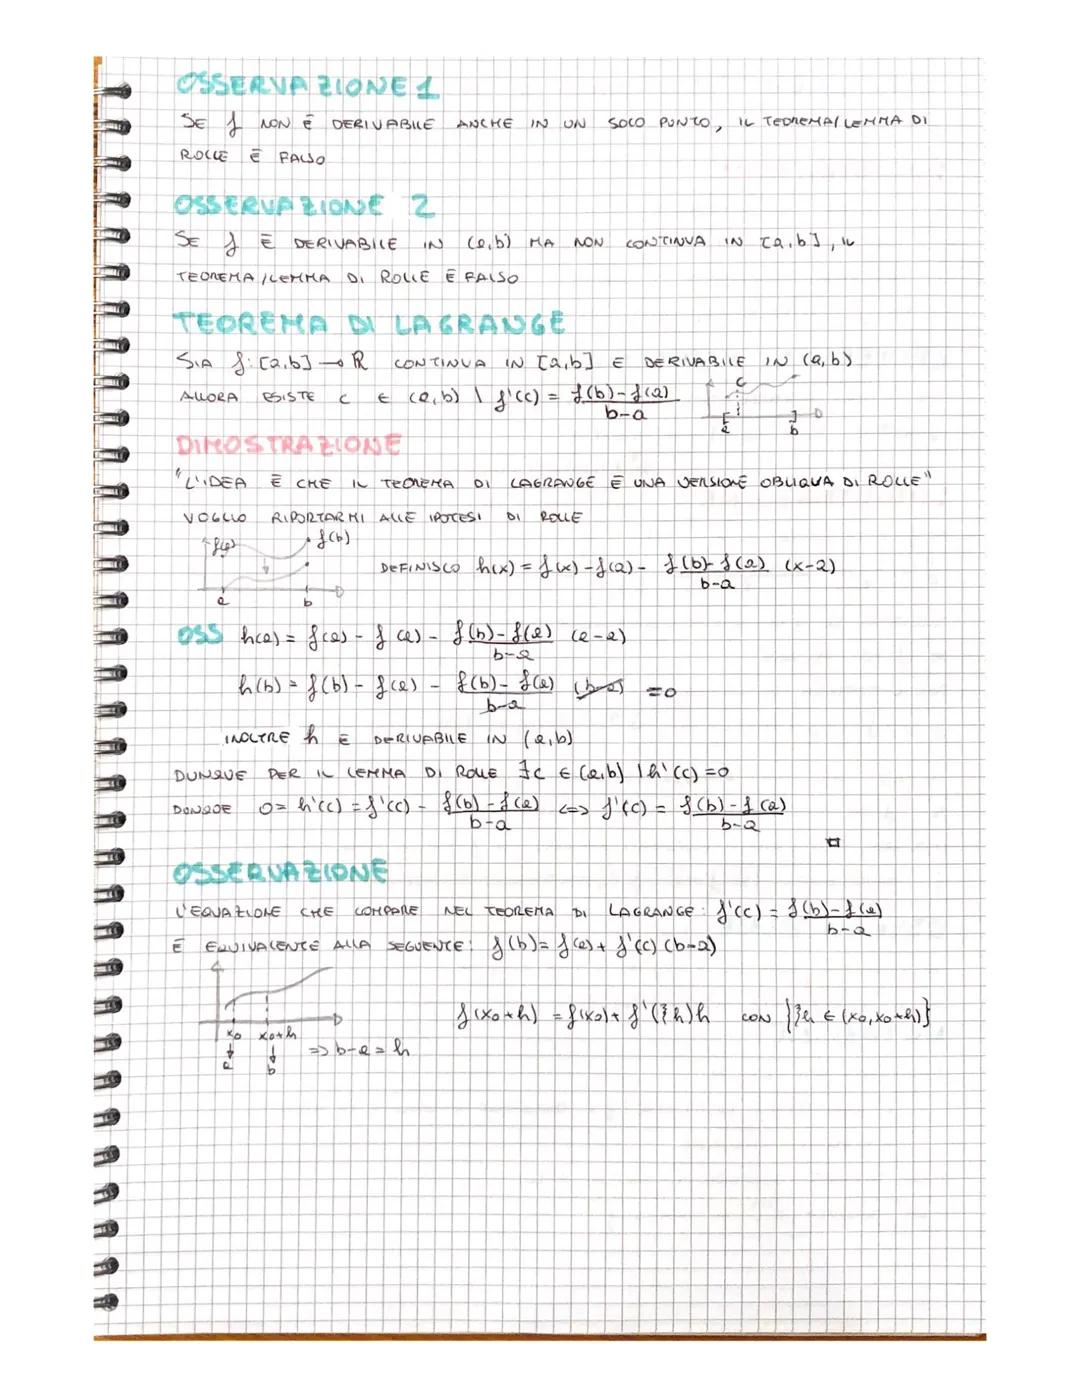 OSSERVAZIONE 1
SE f NON È DERIVABILE ANCHE IN UN SOLO PUNTO, IL TEOREMA/LEMMA DI
ROLLE È FALSO
OSSERVAZIONE 2
SE f È DERIVABILE IN (a,b) MA NON CONTINUA IN [a,b], IL
TEOREMA/LEMMA DI ROLLE È FALSO
TEOREMA DI LAGRANGE
SIA f: [a,b] → R CONTINUA IN [a,b] E DERIVABILE IN (a,b)
ALLORA ESISTE c ∈ (a,b) | f'(c) = f(b)-f(a) / b-a
c
a b
DIMOSTRAZIONE
"L'IDEA È CHE IL TEOREMA DI LAGRANGE È UNA VERSIONE OBLIQUA DI ROLLE"
VOGLIO RIPORTARMI ALLE IPOTESI DI ROLLE
f(a) f(b)
DEFINISCO h(x) = f(x) - f(a) - f(b)-f(a) / b-a (x-a)
a b
OSS h(a) = f(a) - f(a) - f(b)-f(a) / b-a (a-a)
h(b) = f(b) - f(a) - f(b)-f(a) / b-a (b-a) = 0
INOLTRE h È DERIVABILE IN (a,b)
DUNQUE PER IL LEMMA DI ROLLE ∃c ∈ (a,b) | h'(c) = 0
DUNQUE 0 = h'(c) = f'(c) - f(b)-f(a) / b-a <=> f'(c) = f(b)-f(a) / b-a
□
OSSERVAZIONE
L'EQUAZIONE CHE COMPARE NEL TEOREMA DI LAGRANGE: f'(c) = f(b)-f(a) / b-a
È EQUIVALENTE ALLA SEGUENTE: f(b) = f(a) + f'(c) (b-a)
f(x0+h) = f(x0) + f'(ξh)h CON {ξh ∈ (x0, x0+h)}
x0 x0+h
↓ ↓ => b-a = h
a b